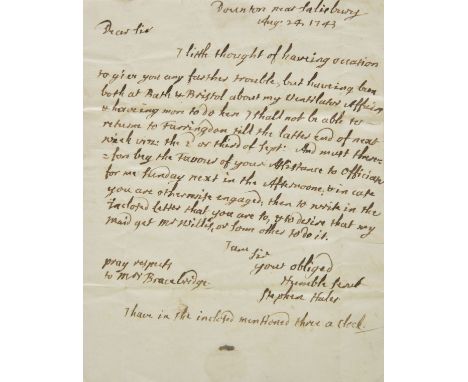 Dounton near Salisbury
Aug. 24. 1743
Dear Sir
I little thought of having occation
to give you any further trouble, but having been
both at Bath & Bristol about my Ventilator Affairs
& having more to do here I shall not be able to
return to Farringdon till the latter end of next
week viz: the 2 or third of Sept: And must there-
=fore beg the favour of your Assistance to Officiate
for me Sunday next in the Afternoone, & in case
you are otherwise engaged, then to write in the
Inclosed letter that you are so, & to desire that my
maid get Mr Willis, or some other to do it.
I am
Sir
your obliged
Humble Servt
Stephen Hales
pray respects
to Mrs Bracebridge.
I have in the inclosed mentioned three a clock.